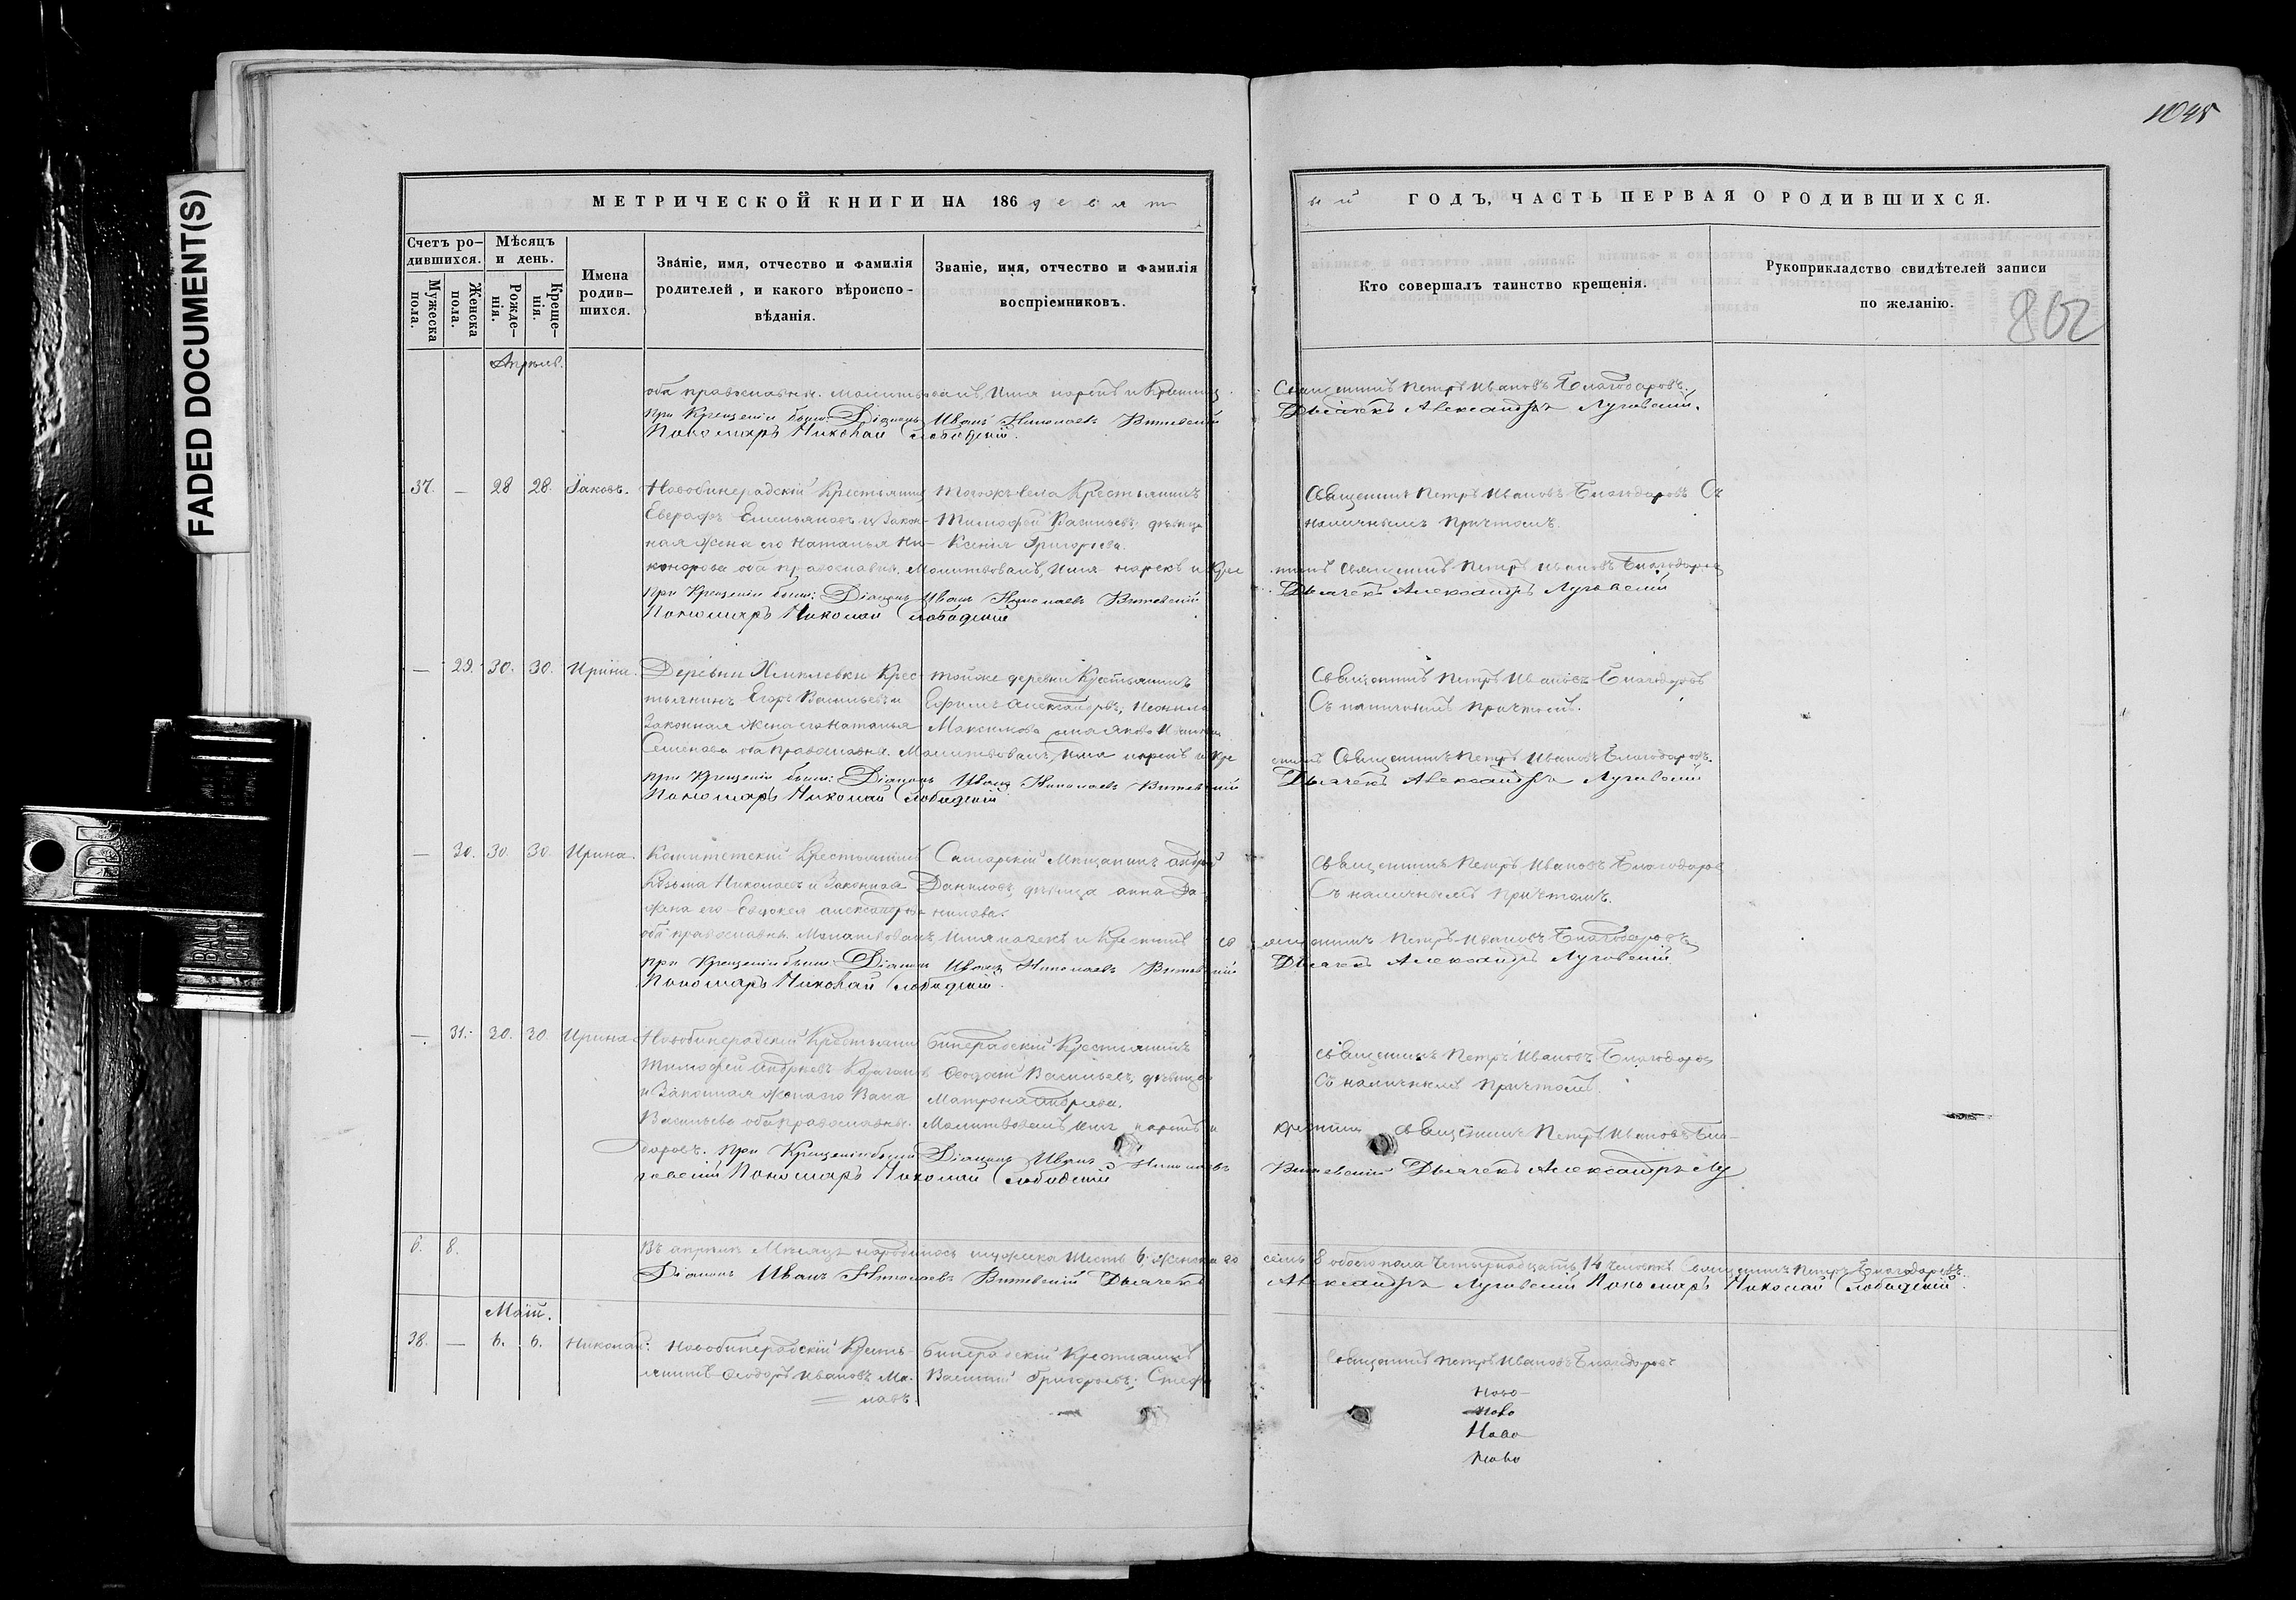 1045
FADED DOCUMENT(S)
МЕТРИЧЕСКОЙ КНИГИ НА 186 девят
ый ГОДЪ, ЧАСТЬ ПЕРВАЯ О РОДИВШИХСЯ.
Счетъ ро-
дившихся.
Мужеска
пола.
Женска
пола.
Мѣсяцъ
и день.
Рожде-
нія.
Креще-
нія.
Имена
родив-
шихся.
Званіе, имя, отчество и фамилія
родителей, и какого вѣроиспо-
вѣданія.
Званіе, имя, отчество и фамилія
воспріемниковъ.
Кто совершалъ таинство крещенія.
Рукоприкладство свидѣтелей записи
по желанію.
802
Апрѣль.
оба православные. Молитвовалъ, Имя нарекъ и Крестилъ Священникъ Петръ Ивановъ Благодаровъ.
При Крещеніи были: Діаконъ Иванъ Николаевъ Витевскій Дьячекъ Александръ Луговскій.
Пономарь Николай Слободскій.
37. — 28 28. Іаковъ. Новобинерадскій Крестьянинъ Тогожъ села Крестьянинъ Священникъ Петръ Ивановъ Благодаровъ Съ
Евграфъ Емельяновъ и Закон- Тимофей Васильевъ. дѣвица наличнымъ Причтомъ.
ная Жена его Наталья Ни- Ксенія Григорьева.
конорова оба православные. Молитвовалъ, Имя нарекъ и Крестилъ Священникъ Петръ Ивановъ Благодаровъ
При Крещеніи были: Діаконъ Иванъ Николаевъ Витевскій Дьячекъ Александръ Луговскій
Пономарь Николай Слободскій
— 29. 30. 30. Ирина. Деревни Хмилевки Крес- тойже деревни Крестьянинъ Священникъ Петръ Ивановъ Благодаровъ
тьянинъ Егоръ Васильевъ и Ефимъ Александровъ, Съ наличнымъ Причтомъ.
Законная Жена его Наталья Максимова
Семенова оба православные. Молитвовалъ, Имя нарекъ и Крестилъ Священникъ Петръ Ивановъ Благодаровъ.
При Крещеніи были: Діаконъ Иванъ Николаевъ Витевскій Дьячекъ Александръ Луговскій
Пономарь Николай Слободскій
— 30. 30. 30. Ирина. Комитетскій Крестьянинъ Самарскій Мѣщанинъ Андрей Священникъ Петръ Ивановъ Благодаровъ
Козьма Николаевъ и Законная Даниловъ, дѣвица Анна Да- Съ наличнымъ Причтомъ.
Жена его Евдокея Александрова нилова.
оба православные. Молитвовалъ, Имя нарекъ и Крестилъ Священникъ Петръ Ивановъ Благодаровъ
При Крещеніи были: Діаконъ Иванъ Николаевъ Витевскій Дьячекъ Александръ Луговскій
Пономарь Николай Слободскій.
— 31. 30. 30. Ирина Новобинерадскій Крестьянинъ Бинерадскій Крестьянинъ Священникъ Петръ Ивановъ Благодаровъ
Тимофей Андреевъ Васильевъ, дѣвица Съ наличнымъ Причтомъ.
и Законная Жена его Матрона Андреева.
Васильева оба православные. Молитвовалъ Имя нарекъ и Крестилъ Священникъ Петръ Ивановъ Бла-
даровъ. При Крещеніи были Діаконъ Иванъ Николаевъ Витевскій Дьячекъ Александръ Лу
говскій Пономарь Николай Слободскій
6. 8. Въ апрѣлѣ Мѣсяцѣ народилось мужеска Шесть 6. Женскаго семь 8 обоего пола Четырнадцать 14 Человѣкъ Священникъ Петръ Благодаровъ.
Діаконъ Иванъ Николаевъ Витевскій Дьячекъ Александръ Луговскій Пономарь Николай Слободскій.
Маій.
38. — 6. 6. Николай: Новобинерадскій Кресть- Бинерадскій Крестьянинъ Священникъ Петръ Ивановъ Благодаровъ
янинъ Ѳеодоръ Ивановъ Василій Григорьевъ;
Ново-
Ново
Ново
Ново